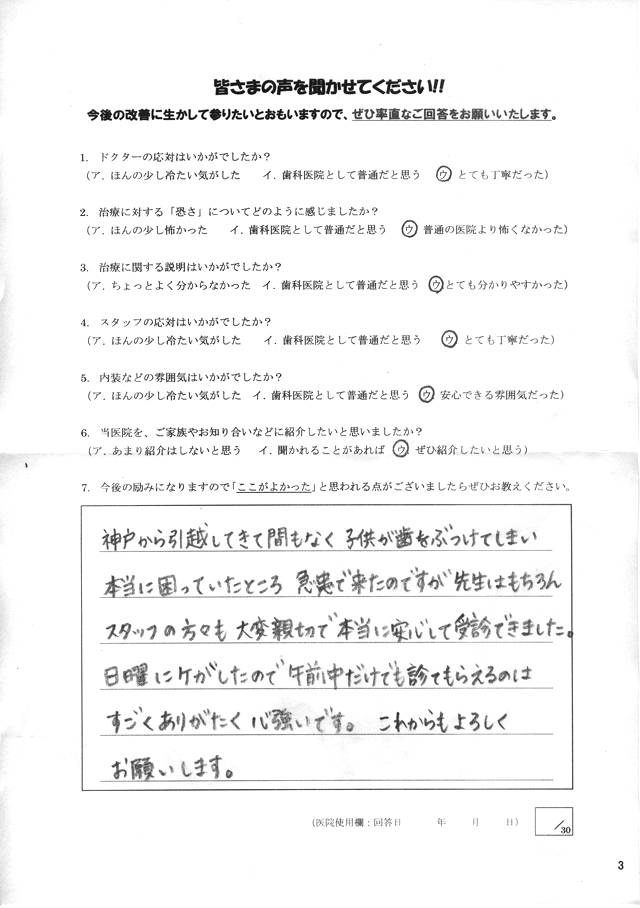 皆さまの声を聞かせてください!!
今後の改善に生かして参りたいとおもいますので、ぜひ率直なご回答をお願いいたします。
1. ドクターの応対はいかがでしたか？
（ア．ほんの少し冷たい気がした　イ．歯科医院として普通だと思う　ウ　とても丁寧だった）
2. 治療に対する「恐さ」についてどのように感じましたか？
（ア．ほんの少し怖かった　イ．歯科医院として普通だと思う　ウ　普通の医院より怖くなかった）
3. 治療に関する説明はいかがでしたか？
（ア．ちょっとよく分からなかった　イ．歯科医院として普通だと思う　ウ　とても分かりやすかった）
4. スタッフの応対はいかがでしたか？
（ア．ほんの少し冷たい気がした　イ．歯科医院として普通だと思う　ウ　とても丁寧だった）
5. 内装などの雰囲気はいかがでしたか？
（ア．ほんの少し冷たい気がした　イ．歯科医院として普通だと思う　ウ　安心できる雰囲気だった）
6. 当医院を、ご家族やお知り合いなどに紹介したいと思いましたか？
（ア．あまり紹介はしないと思う　イ．聞かれることがあれば　ウ　ぜひ紹介したいと思う）
7. 今後の励みになりますので「ここがよかった」と思われる点がございましたらぜひお教えください。
神戸から引越してきて間もなく 子供が歯をぶつけてしまい
本当に困っていたところ 急患で来たのですが 先生はもちろん
スタッフの方々も 大変親切で 本当に安心して受診できました。
日曜にケガしたので 午前中だけでも診てもらえるのは
すごくありがたく 心強いです。 これからもよろしく
お願いします。
（医院使用欄：回答日　　年　　月　　日）
/30
3